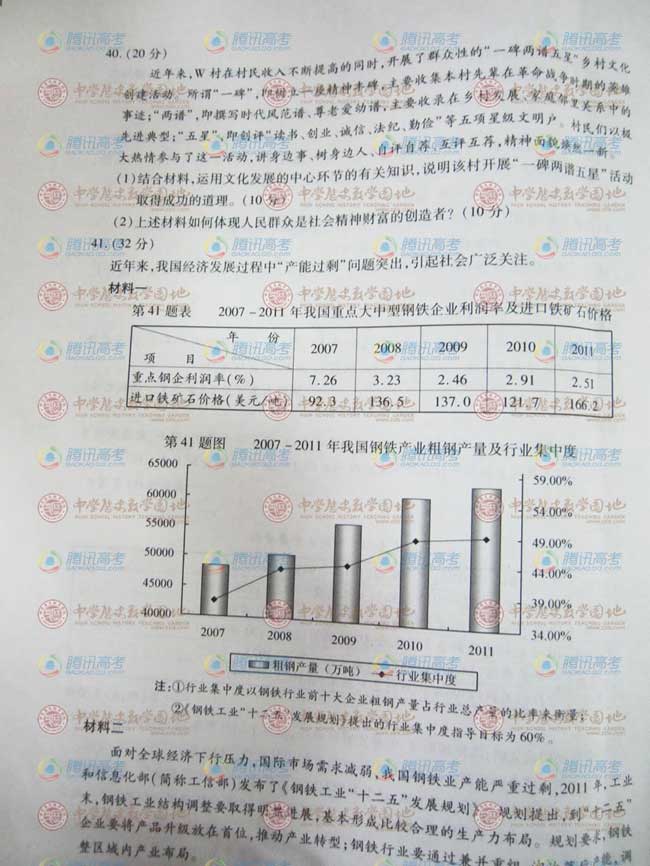 40. (20 分)
近年来, W 村在村民收入不断提高的同时, 开展了群众性的“一碑两谱五星”乡村文化
创建活动。所谓“一碑”, 即树立一座精神丰碑, 主要收集本村先辈在革命战争时期的英雄
事迹; “两谱”, 即撰写时代风范谱、尊老爱幼谱, 主要收录在乡村发展、家庭邻里关系中的
先进典型; “五星”, 即创评“读书、创业、诚信、法纪、勤俭”等五项星级文明户。村民们以极
大热情参与了这一活动, 讲身边事、树身边人、自评自荐、互评互荐, 精神面貌焕然一新。
(1) 结合材料, 运用文化发展的中心环节的有关知识, 说明该村开展“一碑两谱五星”活动
取得成功的道理。(10 分)
(2) 上述材料如何体现人民群众是社会精神财富的创造者? (10 分)
41. (32 分)
近年来, 我国经济发展过程中“产能过剩”问题突出, 引起社会广泛关注。
材料一
第 41 题表 2007 - 2011 年我国重点大中型钢铁企业利润率及进口铁矿石价格
年 份
项 目 2007 2008 2009 2010 2011
重点钢企利润率(%) 7.26 3.23 2.46 2.91 2.51
进口铁矿石价格(美元/吨) 92.3 136.5 137.0 121.7 166.2
第 41 题图 2007 - 2011 年我国钢铁产业粗钢产量及行业集中度
65000
60000
55000
50000
45000
40000
59.00%
54.00%
49.00%
44.00%
39.00%
34.00%
2007 2008 2009 2010 2011
粗钢产量(万吨) 行业集中度
注: ①行业集中度以钢铁行业前十大企业粗钢产量占行业总产量的比率来衡量;
②《钢铁工业“十二五”发展规划》提出的行业集中度指导目标为 60%。
材料二
面对全球经济下行压力, 国际市场需求减弱, 我国钢铁业产能严重过剩, 2011 年, 工业
和信息化部(简称工信部)发布了《钢铁工业“十二五”发展规划》。规划提出, 到“十二五”
末, 钢铁工业结构调整要取得明显进展, 基本形成比较合理的生产力布局。规划要求, 钢铁
企业要将产品升级放在首位, 推动产业转型; 钢铁行业要通过兼并重组
整区域内产业布局。
腾讯高考
GAOKAO.QQ.com
中学历史教学园地
HIGH SCHOOL HISTORY TEACHING GARDEN